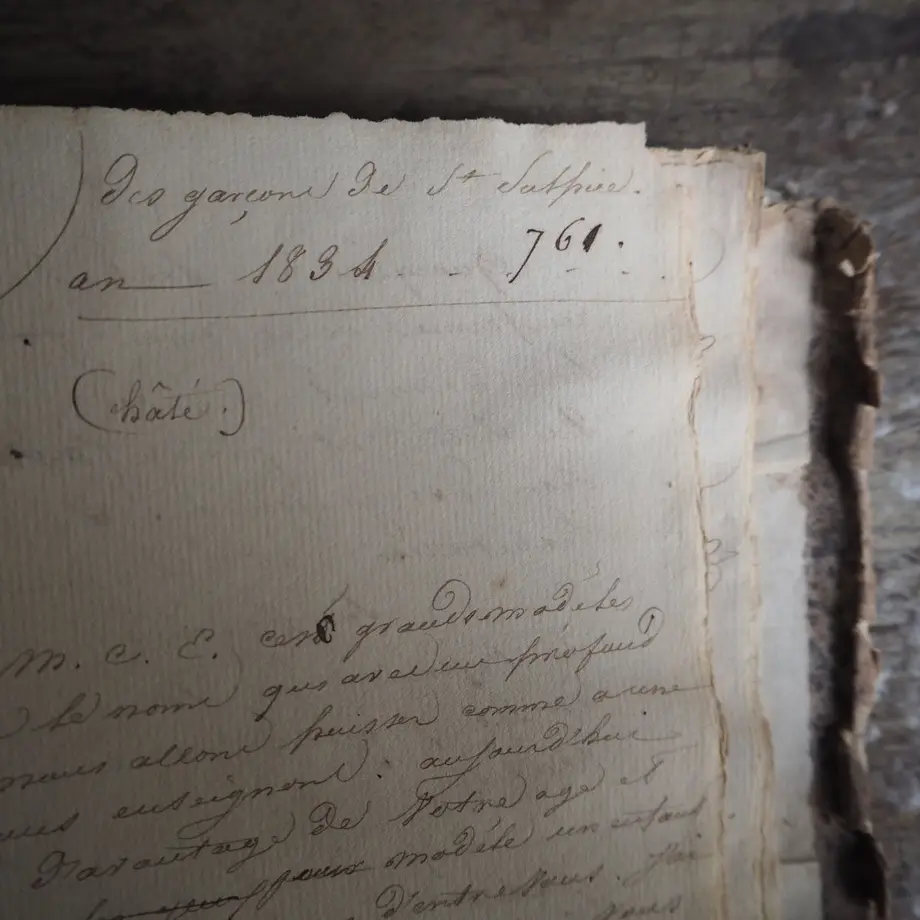 des garçons de St Sulpice.
an 1834 - 761.
(hâté.)
M. C. E. ces grands modèles
le nom, qu'avec un profond
nous allons puiser comme a une
enseignons. aujourd'hui
D'avantage de Votre age et
pour modèle un enfant
D'entre Vous. J'ai